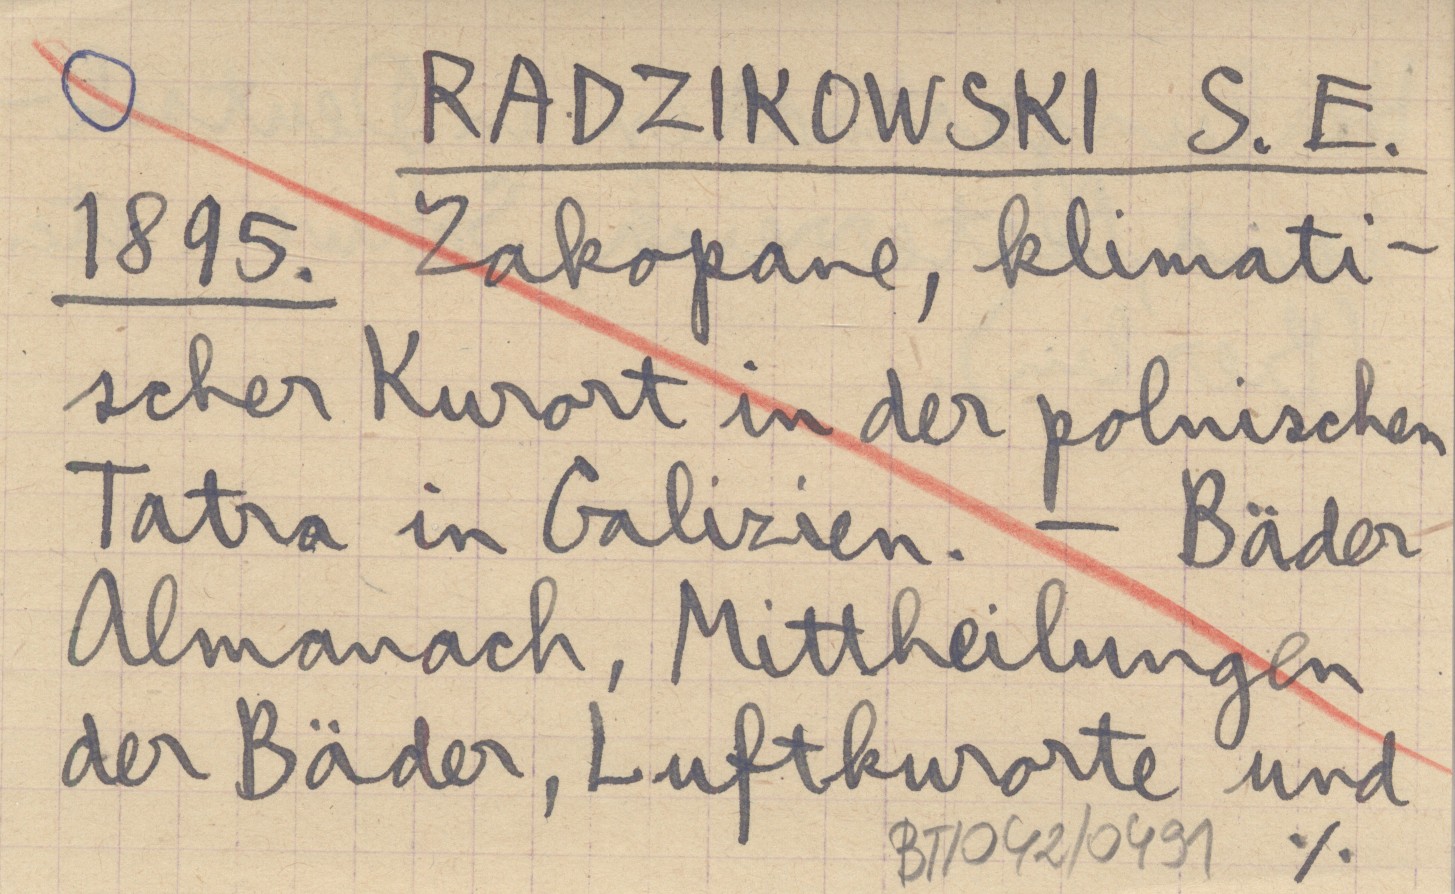 RADZIKOWSKI S. E.
1895. Zakopane, klimati-
scher Kurort in der polnischen
Tatra in Galizien. — Bäder
Almanach, Mittheilungen
der Bäder, Luftkurorte und
BT/042/0491 ·/.